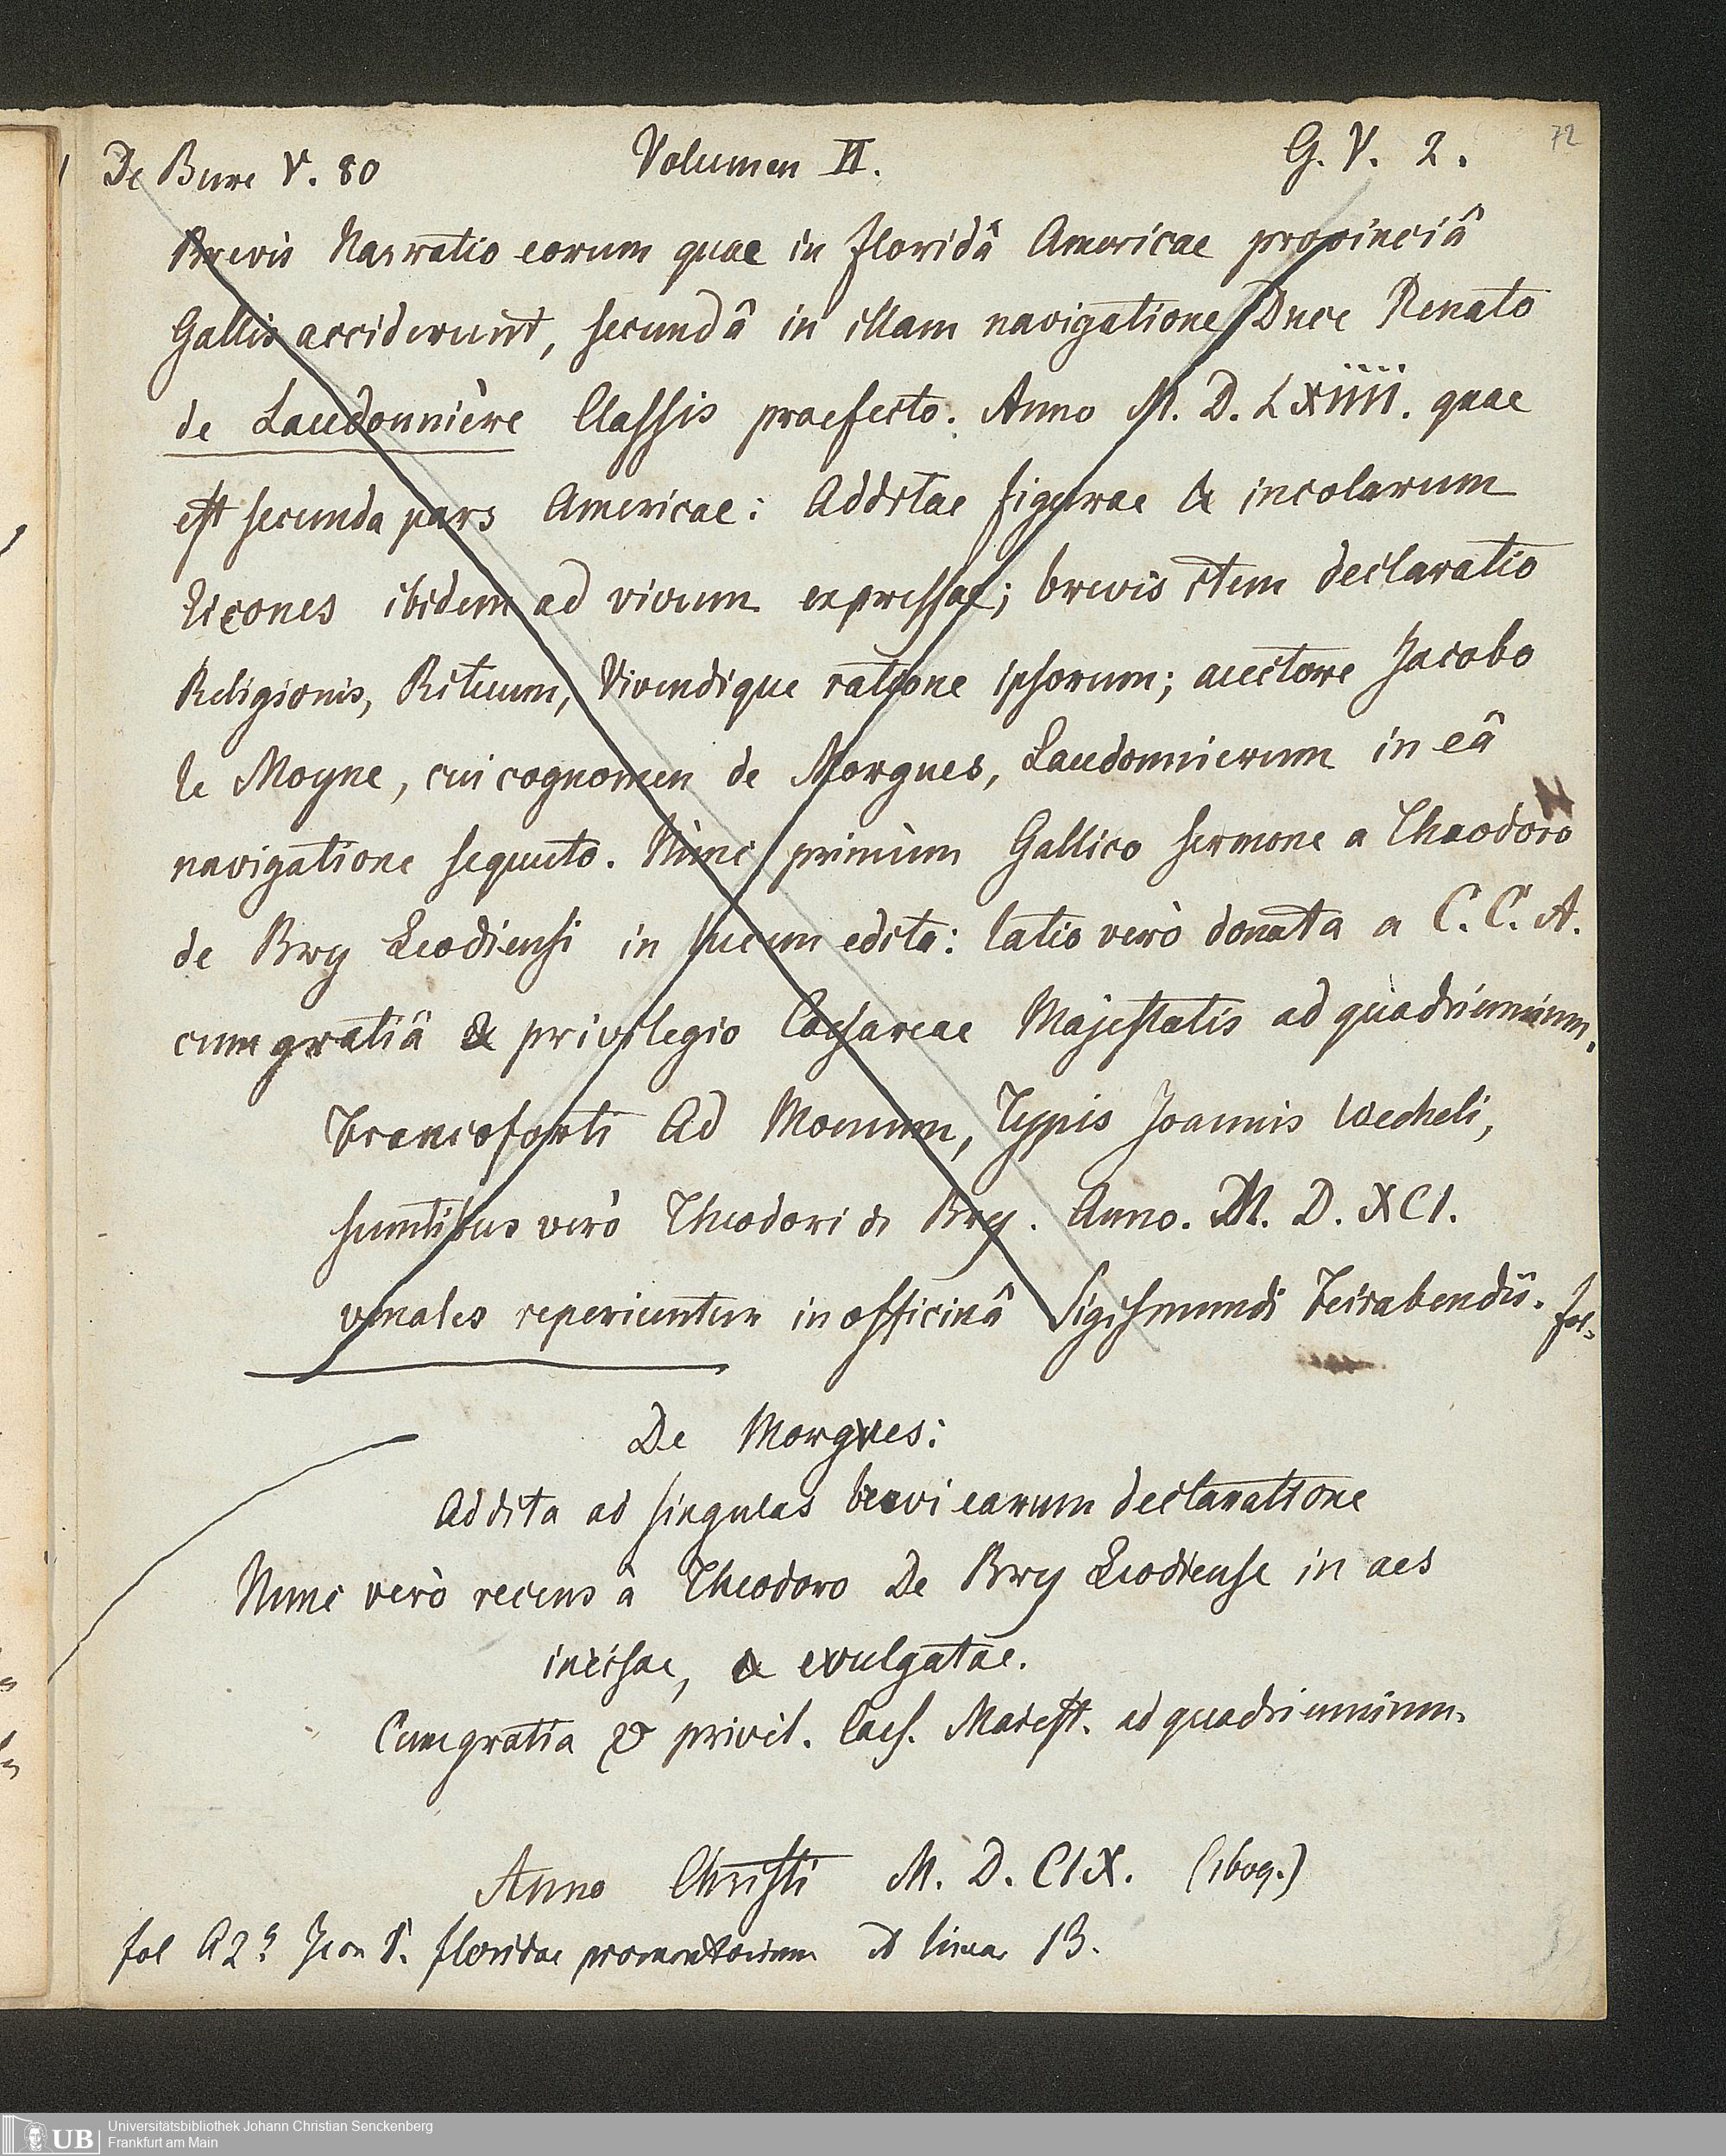 72
De Bure V. 80 Volumen II. G. V. 2.
Brevis Narratio eorum quae in Floridâ Americae provinciâ
Gallis acciderunt, secundâ in illam navigatione Duce Renato
de Laudonnière Classis praefecto. Anno M. D. LXIIII. quae
est secunda pars Americae: Additae figurae & incolarum
Eicones ibidem ad vivum expressae; brevis item declaratio
Religionis, Rituum, Vivendique ratione ipsorum; auctore Jacobo
le Moyne, cui cognomen de Morgues, Laudonnierum in eâ
navigatione sequuto. Nunc primùm Gallico sermone a Theodoro
de Bry Leodiensi in lucem edita: latio verò donata a C. C. A.
cum gratiâ & privilegio Caesareae Majestatis ad quadriennium.
Francoforti Ad Moenum, Typis Joannis Wecheli,
sumtibus verò Theodori de Bry. Anno. M. D. XCI.
venales reperiuntur in officinâ Sigismundi Feirabendii. fol.
De Morgues:
Addita ad singulas brevi earum declaratione
Nunc verò recens à Theodoro De Bry Leodiense in aes
incisae, & evulgatae.
Cum gratia & privil. Caes. Maiest. ad quadriennium.
Anno Christi M. D. CIX. (1609.)
fol A2 Icon I. floridae promontorium linea 13.
UB Universitätsbibliothek Johann Christian Senckenberg
Frankfurt am Main